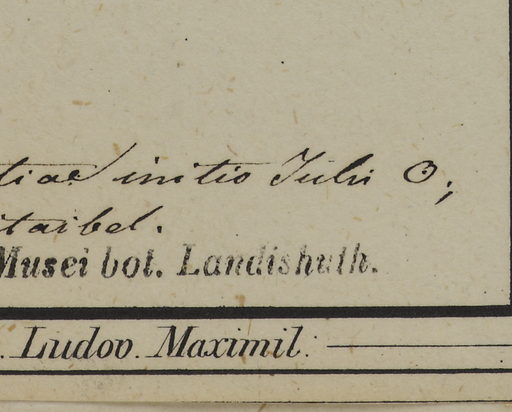 tiae initio Julii O;
itaibel.
Musei bot. Landishuth.
. Ludov. Maximil.